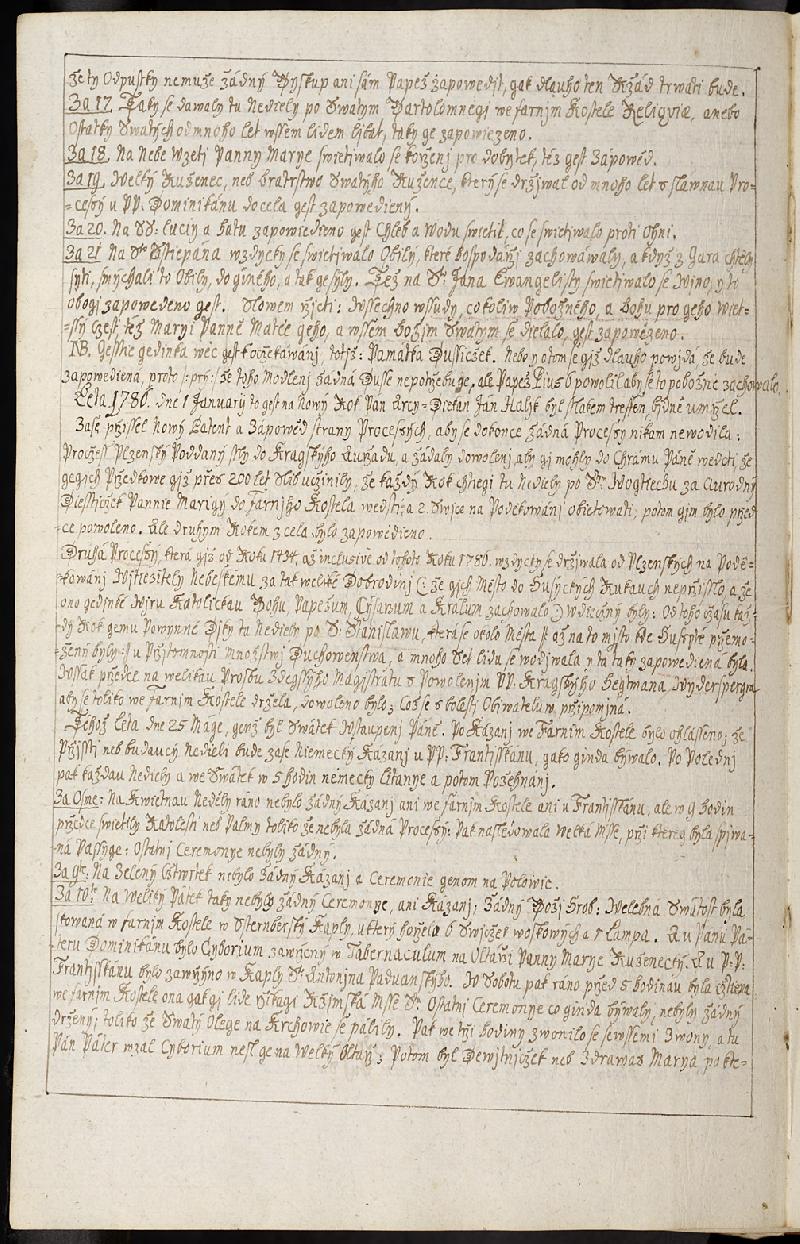 že ty Odpustky nemuže žádný Byskup ani sám Papež zapowědit, gak dlauho ten Ržád trwati bude.
Za 17. Taky se dawaly tu Neděly po Swatym Bartolomnegi we farnjm Kostele Reliqviæ, anebo
Ostatky Swatých odmnoho let wssem lidem ljbat, taky ge zapowiezeno.
Za 18. Na Nebe Wzeti Panny Marye swietiwalo se korženj pro dobytek, též gest Zápowěd.
Za 19. Welký Ruženec, neb bratrstwo Swatýho Ružence, který se držjwal od mnoho let s slawnau Pro-
=cessý u PP. Dominikánu docela gest zapowediený.
Za 20. Na SS: Luciy a Hatu zapowiedieno gest Chléb a Wodu swietit, co se swietiwalo proti Ohni.
Za 21 Na Sto Sstiepána wzdycky se swietiwalo Obily, které hospodářj zachowáwaly, a když z Jara chtěly
sýti, smýchali to Obily, do giného, a tak gesýly. Též na S. Jana Ewangelisty swietiwalo se wjno, y to
obogj zapowedeno gest. Slowem ržjcti: Wssechno wssudy, cokoliw Pobožného, a Bohu pro geho Wiet-
=ssý Czest též Maryi Panně Matce geho, a wssem Božjm Swatym se dielalo, gest zapowězeno.
NB. Gesstie gedinká wěc gest k očzekáwánj, totiž: Památka Dussiček. Nebo y otom se giž dlauho powjdá že bude
zapowediená, proto že prý: že tyho Modlenj žádná Dusse nepotržebuge, ale Papež Pius 6 powolil aby se to pobožně zachowalo.
Léta 1786. dne 1 January to gest na nowý Rok Pan Arcy-Diekan Ján Halyk byl sslakem trefen bjdně umržel.
Zase przissel Nowý Patent a Zápowěd strany Processých, aby se dokonce žádná Processý nikam newodila:
Pročžest Plzenský Poddaný ssly do Kragského Auržadu, a žádaly dowolenj, aby gj mohly do Chrámu Páně wedsti, že
gegich Pržedkowe giž přes 200 let Slib učinily, že každý Rok chtegi tu Nediely po Sto Wogtiechu za Aurodný
Diesstičžek Pannie Marigy do Farnjho Kostela wedsti, a 2. Swjce na Podiekowánj obietowati, potom gjm bylo pržed-
=ce powoleno. Ale druhym Rokem zcela bylo zapowedieno.
Druhá Processý, která giž od Roku 1434, až inclusive od tohoto Roku 1786. wzdycky se držjwala od Plzenských na Podě-
=kowánj Wjtiezitely Nebeskému, za tak weliké Dobrodinj (: že gich Město do Husyckých Rukauch nepřisslo, a že
ono gedjné Wjru Katolickau Bohu, Papežum, Cýsarum a Králum zachowalo :) wdiečzný byly: Od toho čžasu kaž-
dý Rok gemu Powynné Djky tu Nediely po S. Stanislawu, která se okolo Města ss až na to mjsto kde Husyté přemo-
=ženy byly :s u Přjtomnosti množstwj Duchowenstwa, a mnoho Set lidu se wodjwala y ta taky zapowediená byla.
Wssak předce na welikau Prosbu Zdegssýho Magistrátu s Powolenjm PP. Kragského Hegtmana, Wydersperga
aby se toliko we Farnjm Kostele držela, dowoleno bylo; což se s bolestj Obiwatelum, připomjná.
Téhož Léta dne 25 Mage, genž byl Swátek Wstaupenj Páně. Po Kázanj we Farnjm Kostele bylo ohlásseno; že
Přjsstj neb budaucý Nedieli bude zase Niemecký Kázanj u PP: Frantisskánu, gako ginda býwalo. Po Polednj
pak každau Nediely a we Swátek w 5 hodin německý Lýtanye a potom Požehnánj.
Za Osmé: Na Kwietnau Neděly ráno nebylo žádný Kázanj ani we farnjm Kostele ani u Frantisskánu, ale w 9 hodin
předce swietily Ratolesti neb Palmy toliko že nebyla žádná Processý: Pak následowala Welká Msse, při které byla spjwa-
=ná Passyge: Ostatnj Ceremonye nebyly žádný.
Za 9té: Na Zelený Cžtwrtek nebylo žádný Kázanj a Ceremonie genom na Polowic.
Za 10té Na Weliký Pátek taky nebylo žádný Ceremonye, ani Kázanj; žádný Božj Hrob: Welebná Swátost byla
schowaná w farnjm Kostele w Sternberský Kaply, u který hořželo 6 Swjček woskowých a 1 Lampa. A u Panu Pa-
=teru Dominikánu bylo Cyborium zawřjny w Tabernaculum na Oltáři Panny Marye Ruženecký. A u P.P.
Frantisskánu bylo zawřjno w Kaply Sto Antonjna Paduanského. W Sobotu pak ráno před 5 hodinau byla čžtena
we farnjm Kostele ona gak gj lidé řikagi Ržjmská Msse Sto. Ostatnj Ceremonye co ginda býwaly, nebyly žádný
drženy; toliko že Swatý Olege na Krchowie se pálily. Pak we tři hodiny zwonilo se sewssemi Zwony, a tu
Pán Páter wzal Cyborium nesl ge na Welký Oltář; Potom byl Dewjtnjčžek neb Zdrawas Marya, po kte-